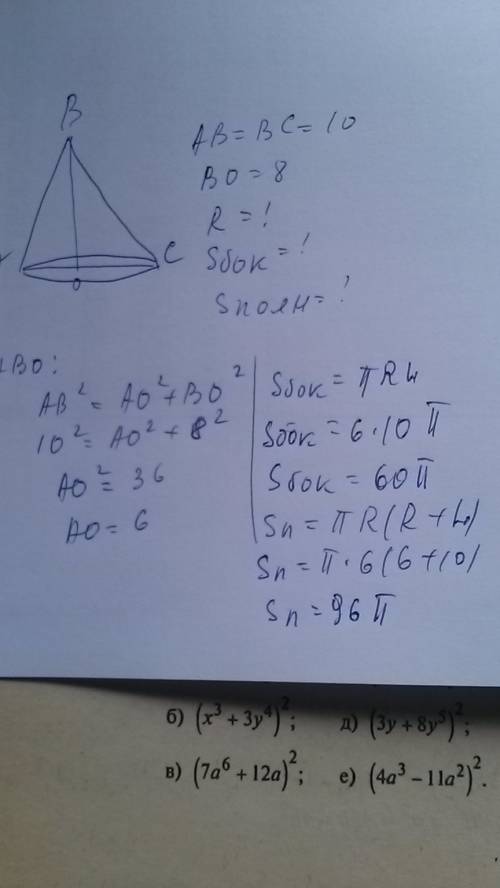 B
C
O
AB = BC = 10
BO = 8
R = !
Sбок = !
Sполн = !
ABO:
AB² = AO² + BO²
10² = AO² + 8²
AO² = 36
AO = 6
Sбок = πRL
Sбок = 6·10 π
Sбок = 60π
Sп = πR(R+L)
Sп = π·6(6+10)
Sп = 96π
б) (x³ + 3y⁴)²; д) (3y + 8y⁵)²;
в) (7a⁶ + 12a)²; е) (4a³ – 11a²)².